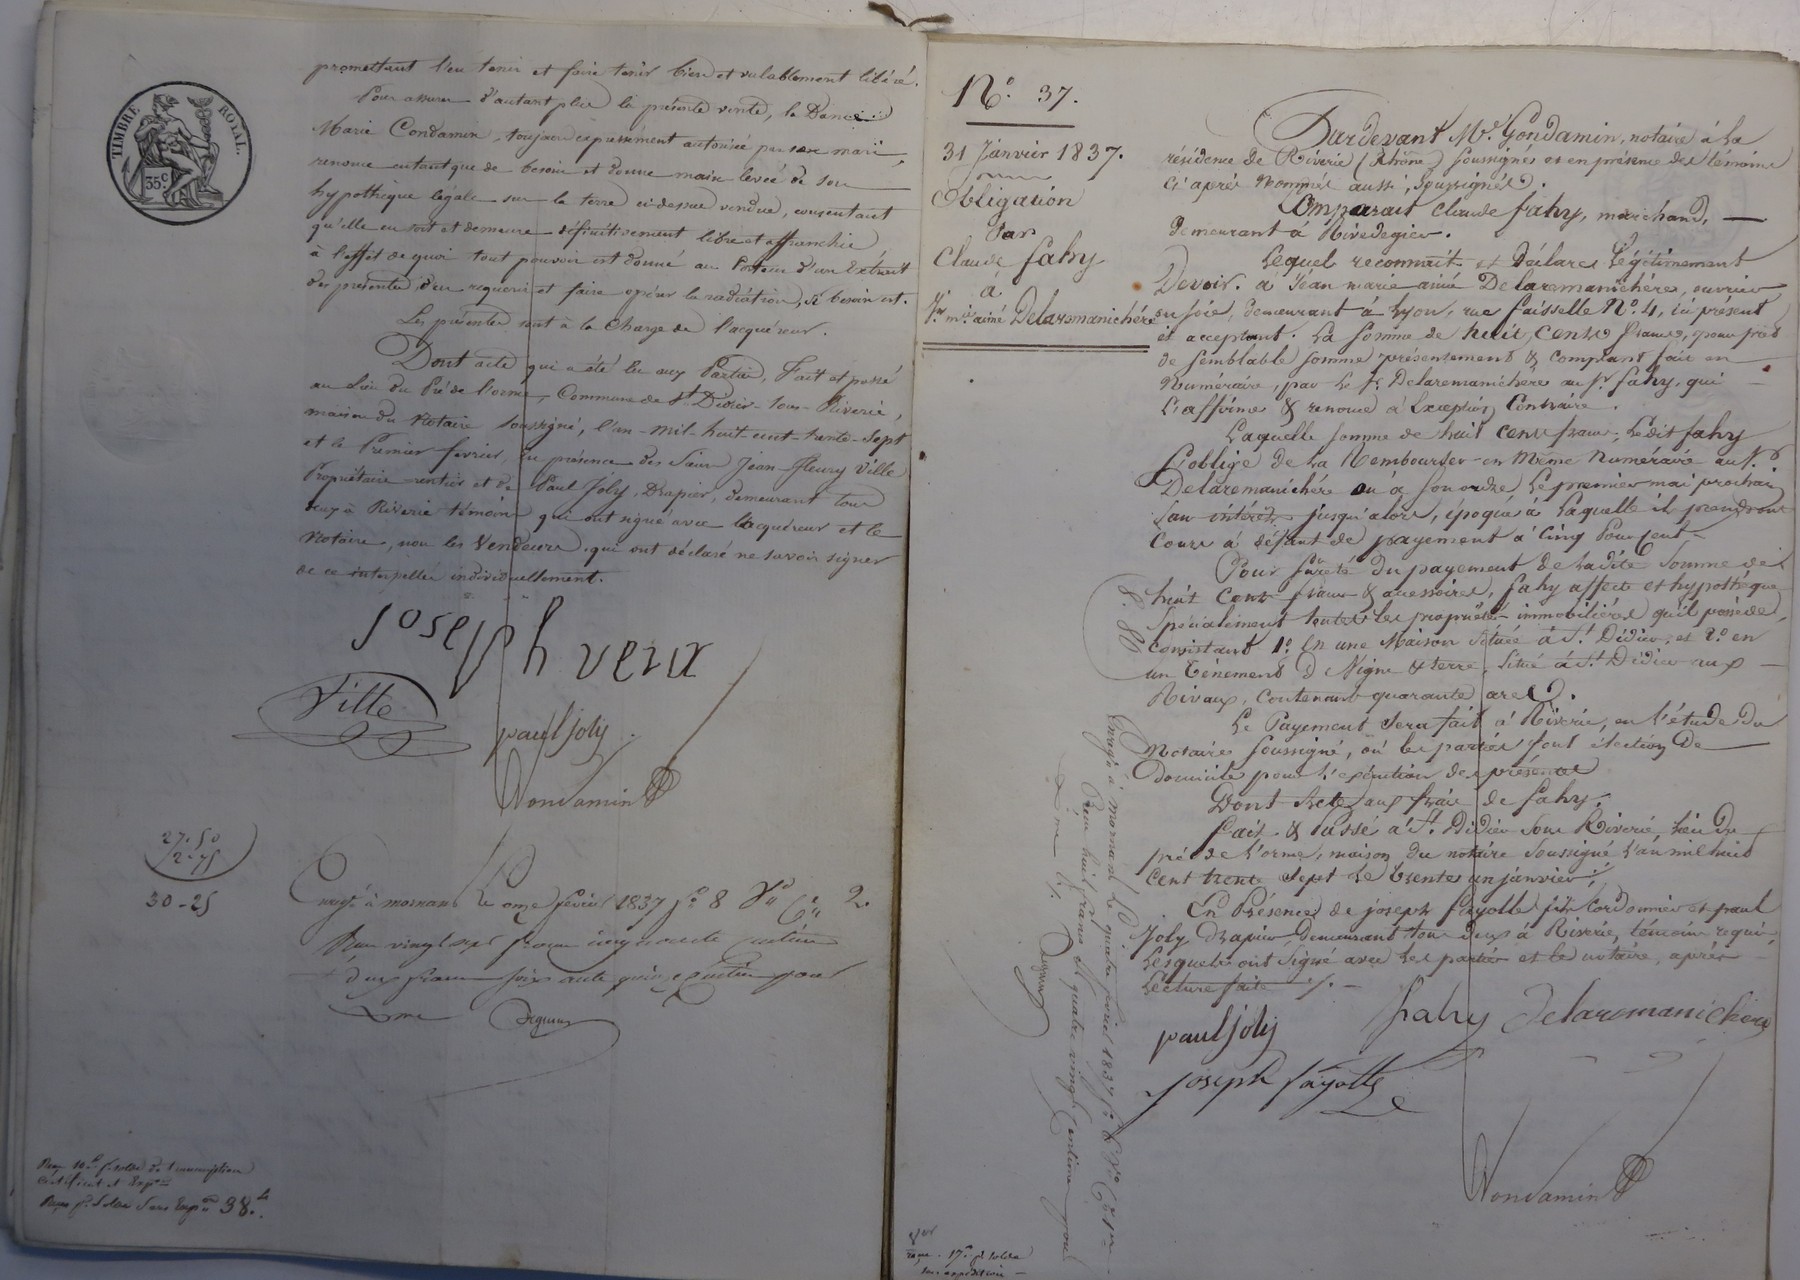 TIMBRE ROYAL.
35 c
promettant l'en tenir et faire tenir bien et valablement libéré.
Pour assurer d'autant plus la présente vente, la Dame
Marie Condamin, toujours expressément autorisée par son mari,
renonce en tant que de besoin et donne main levée de son
hypothèque légale sur la terre ci-dessus vendue, consentant
qu'elle en soit et demeure définitivement libre et affranchie
à l'effet de quoi tout pouvoir est donné au Porteur d'un Extrait
des présentes d'en requerir et faire opérer la radiation, si besoin est.
Les présentes sont à la charge de l'acquéreur.
Dont acte qui a été lu aux Parties, Fait et passé
au lieu du Pré de l'orme, Commune de St Didier-sous-Riverie,
maison du Notaire soussigné, l'an-mil-huit-cent-trente-sept
et le Premier fevrier, En présence des Sieurs Jean-Fleury Ville
Propriétaire-rentier et de Paul Joly, Drapier, demeurant tous
deux à Riverie témoins qui ont signé avec l'acquéreur et le
Notaire, non les Vendeurs, qui ont déclaré ne savoir signer
de ce interpellés individuellement.
Joseph
Ville
paul joly
Condamin
27-50
2-75
30-25
Enregé à mornant le onze février 1837 fo 8 Vo Ces 2.
Reçu vingt sept francs cinquante centimes
deux francs soixante quinze centimes pour
Dxme
Reçu 10 f. solde de transcription
certificat et Expon
Reçu p. Solde Sans Expon 38.
No. 37.
31 Janvier 1837.
Obligation
Par
Claude fahy
à
Jn mie aimé Delaremanichére
Pardevant Me. Condamin, notaire à la
résidence de Riverie (Rhône) soussigné et en présence des témoins
ci après nommés aussi soussignés.
Comparait Claude fahy, marchand,
demeurant à Rivedegier.
Lequel reconnait et déclare légitimement
Devoir. à Jean marie aimé Delaremanichére, ouvrier
en soie, demeurant à Lyon, rue faisselle No. 4, ici présent
et acceptant. La somme de huit cents francs, pour prêt
de semblable somme présentement & comptant fait en
Numéraire, par le Sr. Delaremanichére au Sr. fahy, qui
l'affirme & renonce à Exception Contraire.
Laquelle somme de huit cents francs, ledit fahy
s'oblige de la Rembourser en Même Numéraire au Sr.
Delaremanichére ou à son ordre le premier mai prochain
sans intérêts jusqu'alors, époque à laquelle ils prendront
Cours à défaut de payement à Cinq Pour Cent.
Pour sureté Du payement de ladite Somme de
huit Cents francs & accessoires, fahy affecte et hypothèque
Spécialement toutes les propriétés immobilières qu'il possède,
Consistant 1o. En une Maison située à St. Didier, et 2o. en
un Ténement de Vigne & terre, Situé à St. Didier aux
Rivaux, Contenant quarante ares.
Le Payement Sera fait à Riverie, en l'étude du
Notaire soussigné, où les parties font élection de
Domicile pour l'exécution des présentes
Dont Acte aux frais de fahy.
fait & Passé à St. Didier sous Riverie, lieu du
pré de l'orme, maison du notaire soussigné l'an mil huit
cent trente sept le trente un janvier.
En Présence de joseph fayolle fils Cordonnier et paul
Joly Drapier, Demeurant tous deux à Riverie, témoins requis,
Lesquels ont signé avec les parties et le notaire, après
Lecture faite ./.
paul joly
fahy
Delaremanichere
joseph fayolle
Condamin
8. 80
Enregé à mornant le quatre février 1837 fo 6 Vo
Reçu huit francs et quatre vingt centimes pour
Dxme
reçu . 17 pr solde
sans expédition